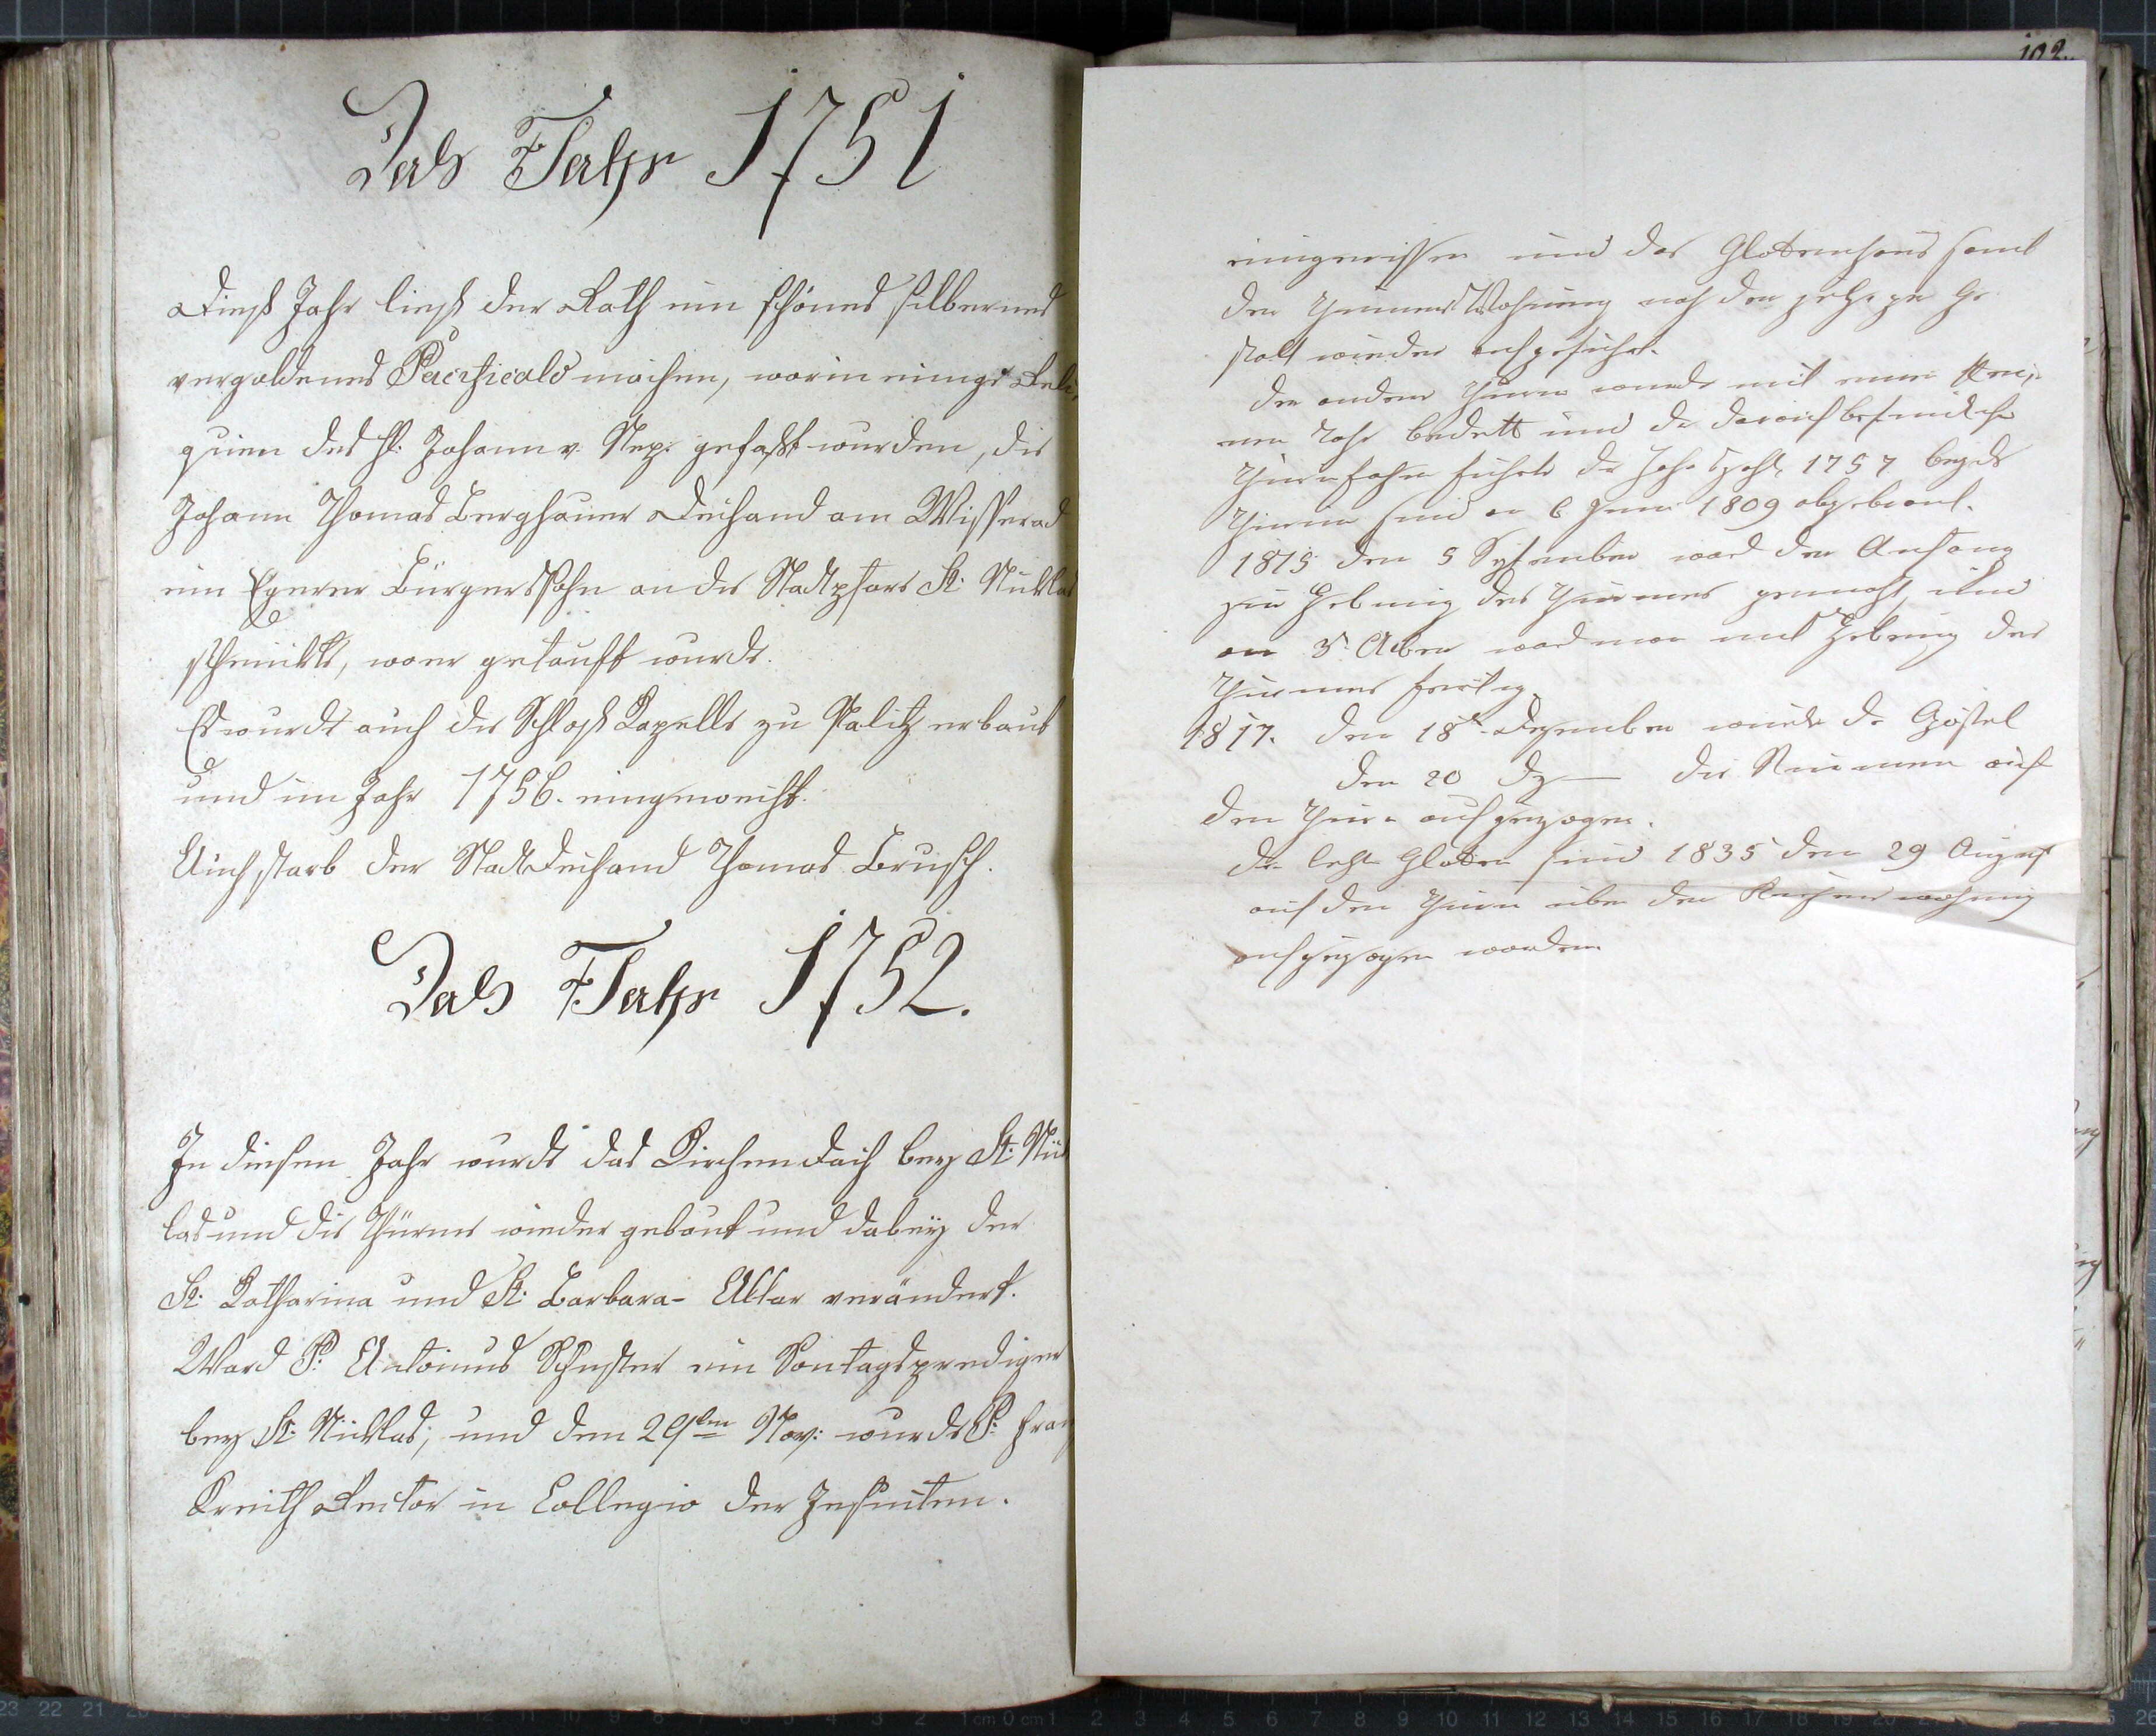 Das Jahr 1751
Dieß Jahr ließ der Rath ein schönes silbernes
vergoldenes Pacificale machen, worin einige Reli,
quien des hl: Johann v. Nep: gefaßt wurden, die
Johann Thomas Berghauer Dechand am Wisserad
ein Egerer Bürgerssohn an die Stadtpfare St: Nicklas
schenkte, wo er getauft wurde.
Es wurde auch die Schloß Kapelle zu Palitz erbaut
und im Jahr 1756. eingeweiht.
Auch starb der Stadtdechand Thomas Brusch.
Das Jahr 1752.
In diesem Jahr wurde das Kirchendach bey St: Nick
las und die Thürme wieder gebaut und dabey der
St: Katharina und St: Barbara- Altar verändert.
Ward P: Antonius Schuster ein Sontagsprediger
bey St: Nicklas, und den 29ten Nov: wurde P: Franz
Kreith Rector in Collegio der Jesuiten.
102.
eingerissen und das Glokenhaus samt
der Thurmers Wohnung nach der jetzigen Ge
stalt wieder aufgeführt.
Der andere Thurm wurde mit einen
bedekt und die darauf befindliche
Thurmfahn führte die Jahrzahl 1757 beyde
Thürme sind am 6 Juni 1809 abgebrant.
1815 den 5 September ward der Anfang
zu Hebung des Thurmes gemacht und
am 5. 8ber war man mit Hebung des
Thurmes fertig.
1817. den 18t Dezember wurde die
den 20 Dz — die auf
den Thurm aufgezogen.
Die letzte Gloken sind 1835 den 29 August
auf den Thurm über der wohnung
aufgezogen worden